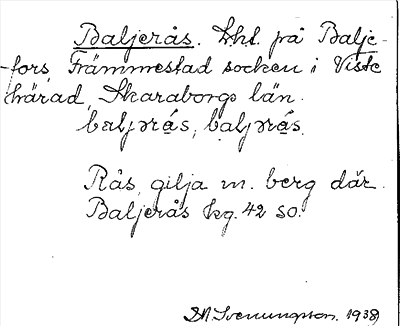 Baljerås. Lht. på Balje-
-fors, Främmestad socken i Viste
härad, Skaraborgs län.
baljrås, baljərås.
Rås, gilja m. berg där.
Baljerås kg. 42 so.
Svenungson. 1938